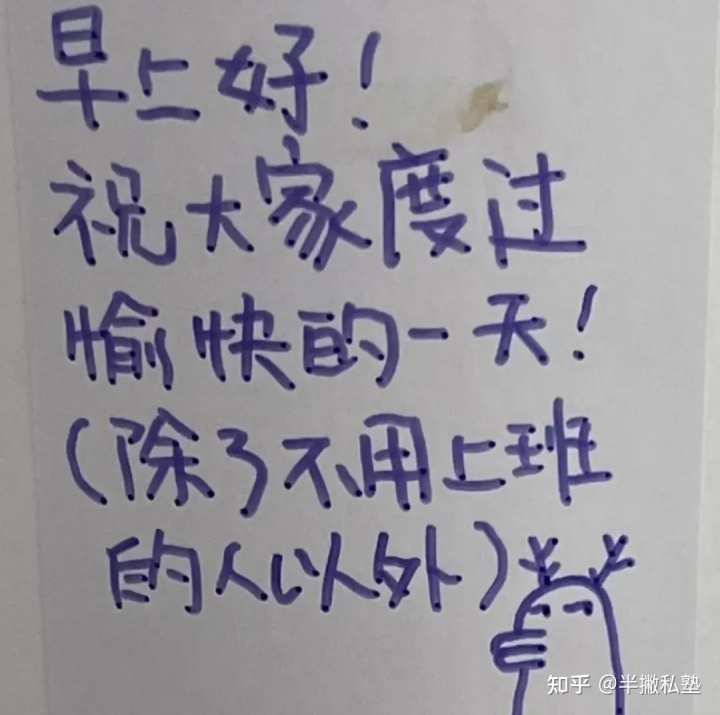 早上好!
祝大家度过
愉快的一天!
(除了不用上班
的人以外)
知乎 @半撇私塾